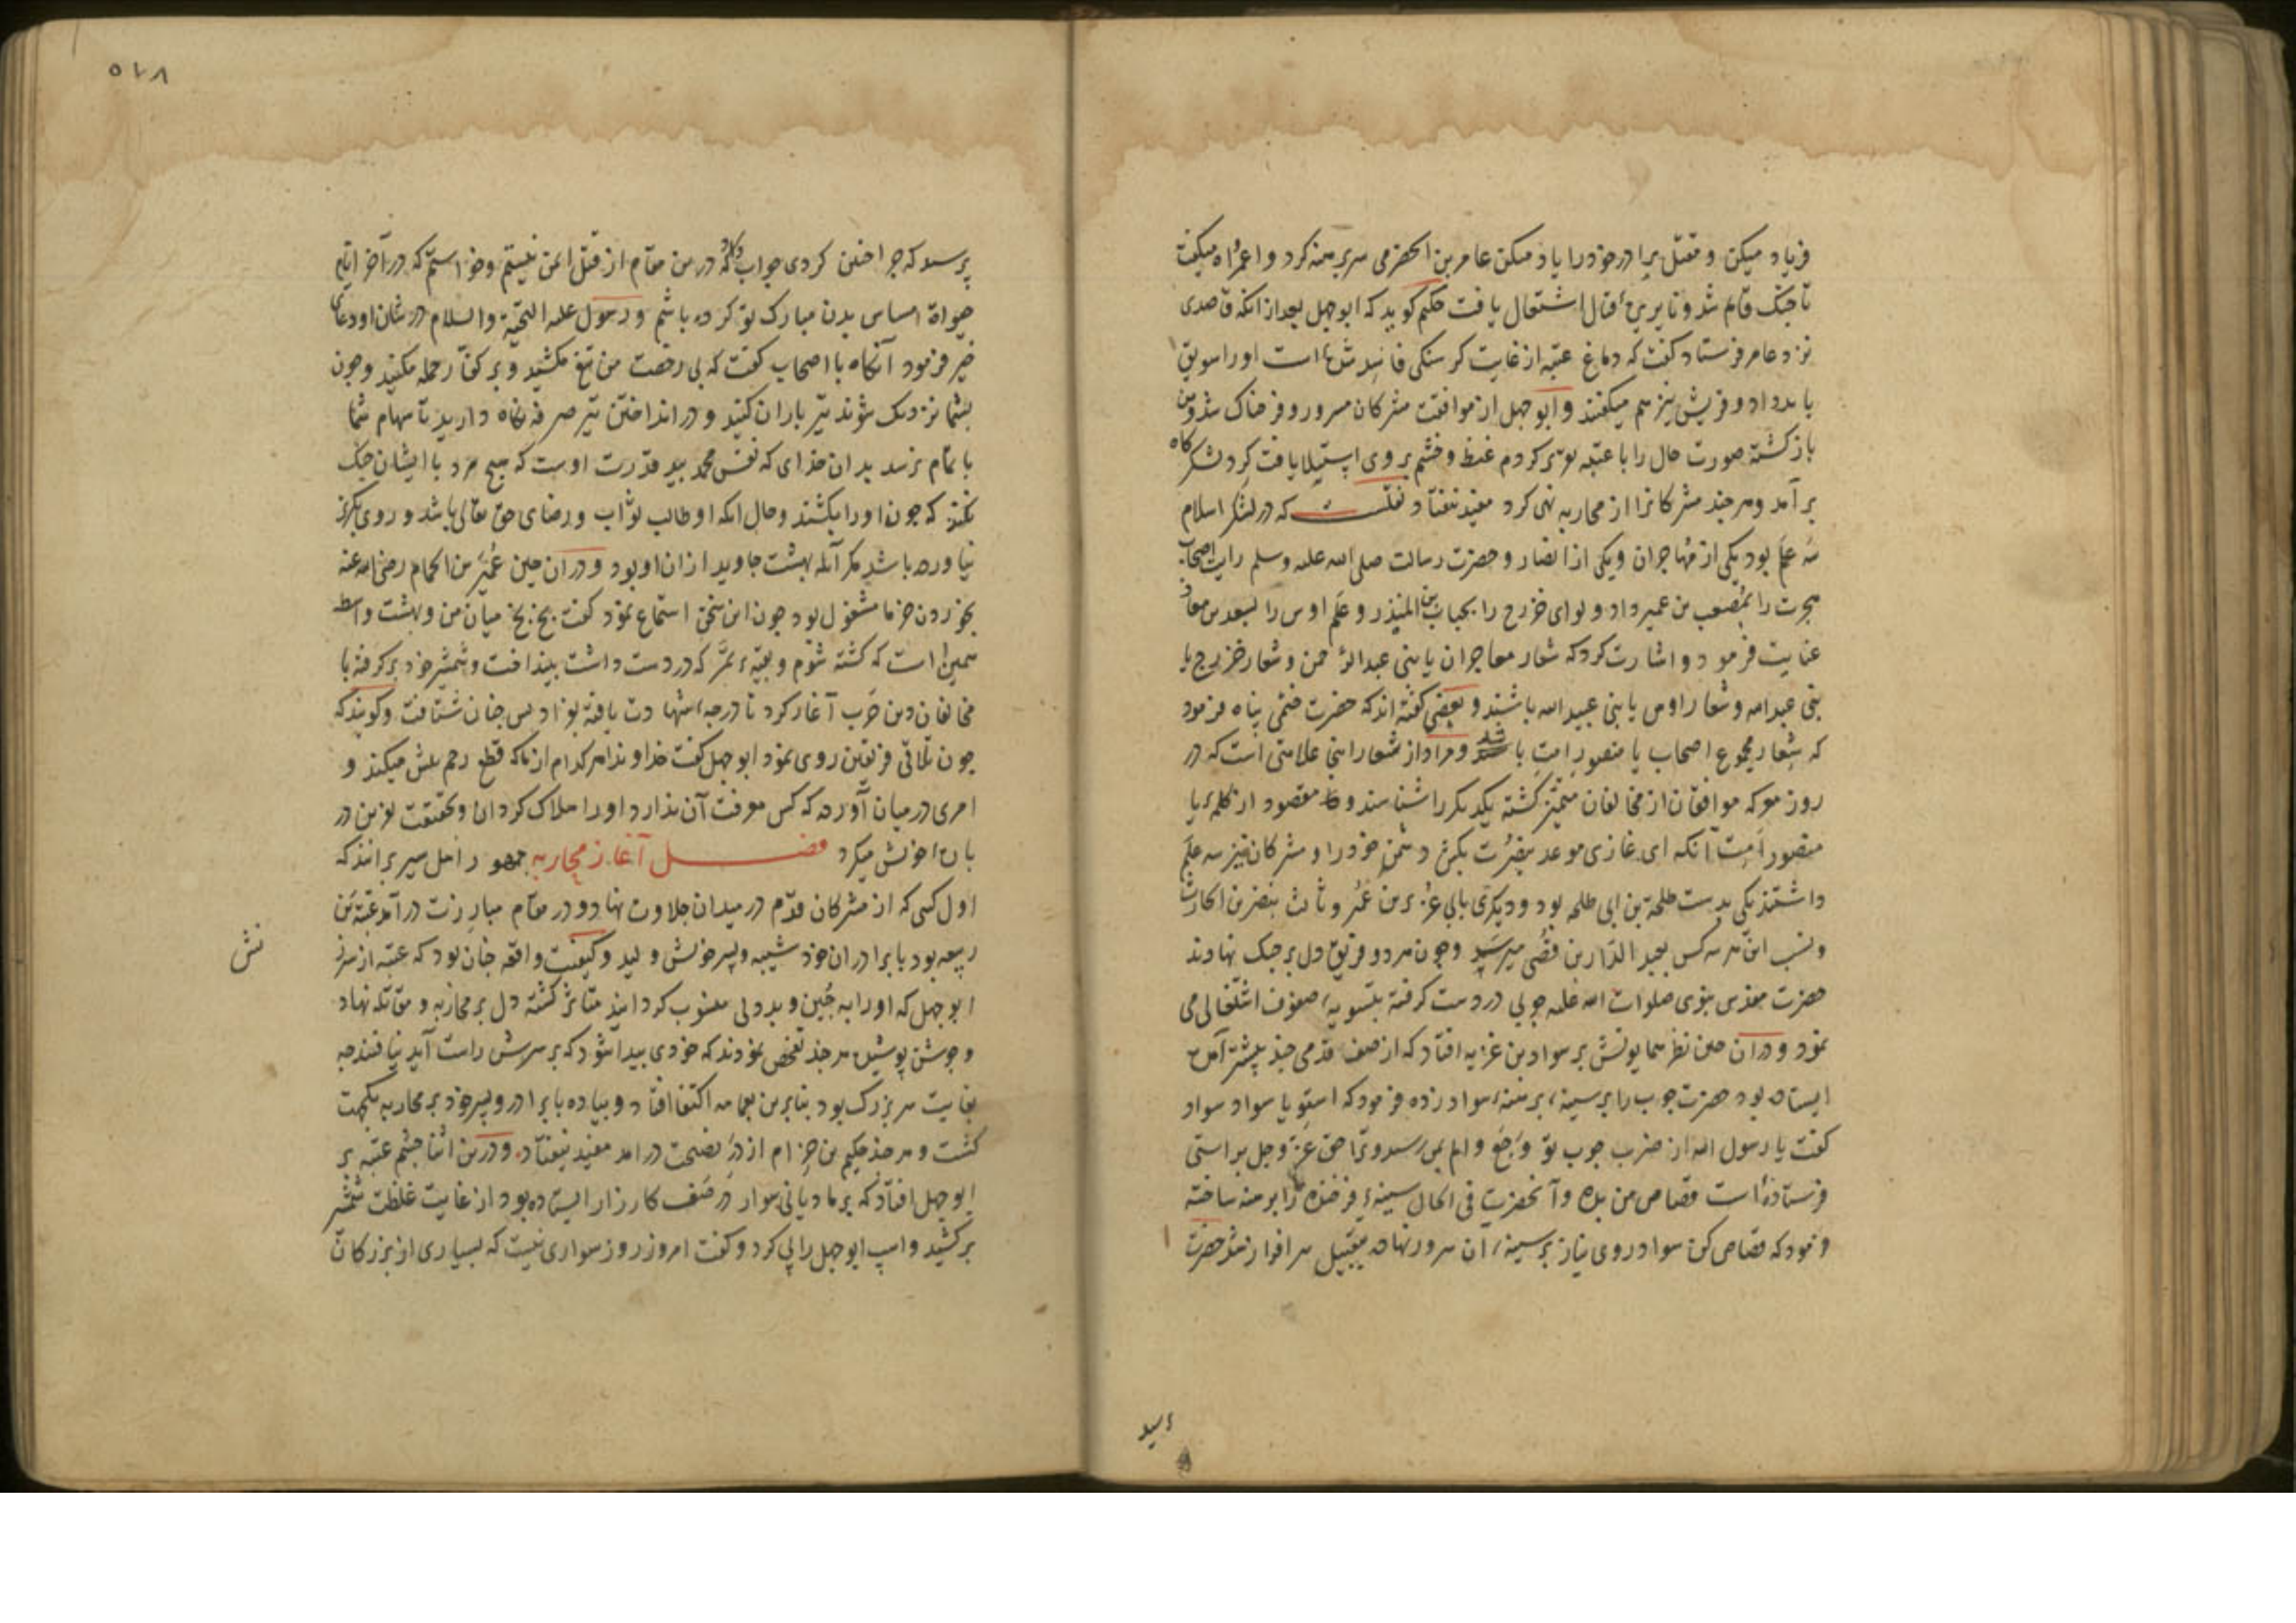 فریاد میکن و مقتل برادر خود را یاد میکن عامر بن الحضرمی سر برهنه کرد و اعمراه میگفت
تا جنک قایم شد و نایره قتال اشتعال یافت حکیم کوید که ابوجهل بعد از انکه قاصدی
نزد عامر فرستاد گفت که دماغ عتبه از غایت کرسنکی فاسد شده است او را سویق
باید داد و قریش نیز هم میگفتند و ابوجهل از موافقت مشرکان مسرور و فرحناک شد و من
بازکشته صورت حال را با عتبه تقریر کردم غیظ و خشم بر وی استیلا یافت کرد لشکرکاه
برآمد و هر چند مشرکانرا از محاربه نهی کرد مفید نیفتاد نقلست که در لشکر اسلام
سه علم بود یکی از مهاجران و یکی از انصار و حضرت رسالت صلی الله علیه وسلم رایت اصحاب
هجرت را بمصعب بن عمیر داد و لوای خزرج را بحباب بن المنذر و علم اوس را بسعد بن معاذ
عنایت فرمود و اشارت کرد که شعار مهاجران یا بنی عبد الرحمن و شعار خزرج یا
بنی عبدالله و شعار اوس یا بنی عبیدالله باشند و بعضی گفته اند که حضرت ختمی پناه فرمود
که شعار مجموع اصحاب یا منصور امت باشد و مراد از شعار اینجا علامتی است که در
روز معرکه موافقان از مخالفان متمیز کشته یکدیگر را شناسند و مقصود از کلمه یا
منصور امت آنکه ای غازی موعد بنصرت بکش دشمن خود را و مشرکان نیز سه علم
داشتند یکی بدست طلحة بن ابی طلحه بود و دیگری بابی عزیز بن عمیر و ثالث بنضر بن الحارث
و نسب این هر سه کس بعبد الدار بن قصی میرسد و چون هر دو فریق دل بر جنک نهادند
حضرت مقدس نبوی صلوات الله علیه چوبی در دست کرفته بتسویه صفوف اشتغال می
نمود و در آن حین نظر همایونش بر سواد بن غزیه افتاد که از صف قدمی چند پیشتر آمده
ایستاده بود حضرت چوب را بر سینه برهنه سواد زده فرمود که استو یا سواد سواد
گفت یا رسول الله از ضرب چوب تو وجع و الم بمن رسید و ترا حق عز وجل براستی
فرستاده است قصاص من بده و آنحضرت فی الحال سینه فرخنده را برهنه ساخته
فرمود که قصاص کن سواد روی نیاز بر سینه آن سرور نهاده بتقبیل سرافراز شد حضرت
٥٧٨
پرسید که چرا چنین کردی جواب داد که درین مقام از قتل ایمن نیستم و خواستم که در آخر ایام
حیوة مساس بدن مبارک تو کرده باشم و رسول علیه التحیة والسلام در شان او دعای
خیر فرمود آنکاه با اصحاب گفت که بی رخصت من تیغ مکشید و بر کفار حمله مکنید و چون
بشما نزدیک شوند تیر باران کنید و در انداختن تیر صرفه نکاه دارید تا سهام شما
با تمام نرسد بدان خدای که نفس محمد بید قدرت اوست که هیچ مرد با ایشان جنک
نکند که چون او را بکشند و حال انکه او طالب ثواب و رضای حق تعالی باشد و روی بکریز
نیاورده باشد مکر آنکه بهشت جاوید از ان او بود و در ان حین عمیر بن الحمام رضی الله عنه
بخوردن خرما مشغول بود چون این سخن استماع نمود گفت بخ بخ میان من و بهشت واسطه
همین است که کشته شوم و بقیه تمر که در دست داشت بینداخت و شمشیر خود برکرفته با
مخالفان دین حرب آغاز کرد تا درجه شهادت یافته بفرادیس جنان شتافت و کویند که
چون تلاقی فریقین روی نمود ابوجهل گفت خداوندا هر کدام از ما که قطع رحم بیش میکند و
امری در میان آورده که کس معرفت آن ندارد او را هلاک کردان و بحقیقت نفرین در
باره خویش میکرد فصل آغاز محاربه جمهور اهل سیر برانند که
اول کسی که از مشرکان قدم در میدان جلادت نهاد و در مقام مبارزت درآمد عتبة بن
ربیعه بود با برادران خود شیبه و پسر خویش ولید و کیفیت واقعه چنان بود که عتبه از سرزنش
ابوجهل که او را به جبن و بددلی منسوب کردانید متاثر کشته دل بر محاربه و مقاتله نهاد
و جوشن پوشیده هر چند تفحص نمودند که خودی پیدا شود که بر سرش راست آید نیافتند چه
بغایت سر بزرک بود بنابرین بعمامه اکتفا افتاد و پیاده با برادر و پسر خود بر محاربه یکجهت
کشت و هر چند حکیم بن حزام از در نصیحت درآمد مفید نیفتاد و درین اثنا چشم عتبه بر
ابوجهل افتاد که بر مادیانی سوار در صف کارزار ایستاده بود از غایت غلظت شمشیر
برکشید و اسپ ابوجهل را پی کرد و گفت امروز روز سواری نیست که بسیاری از بزرکان